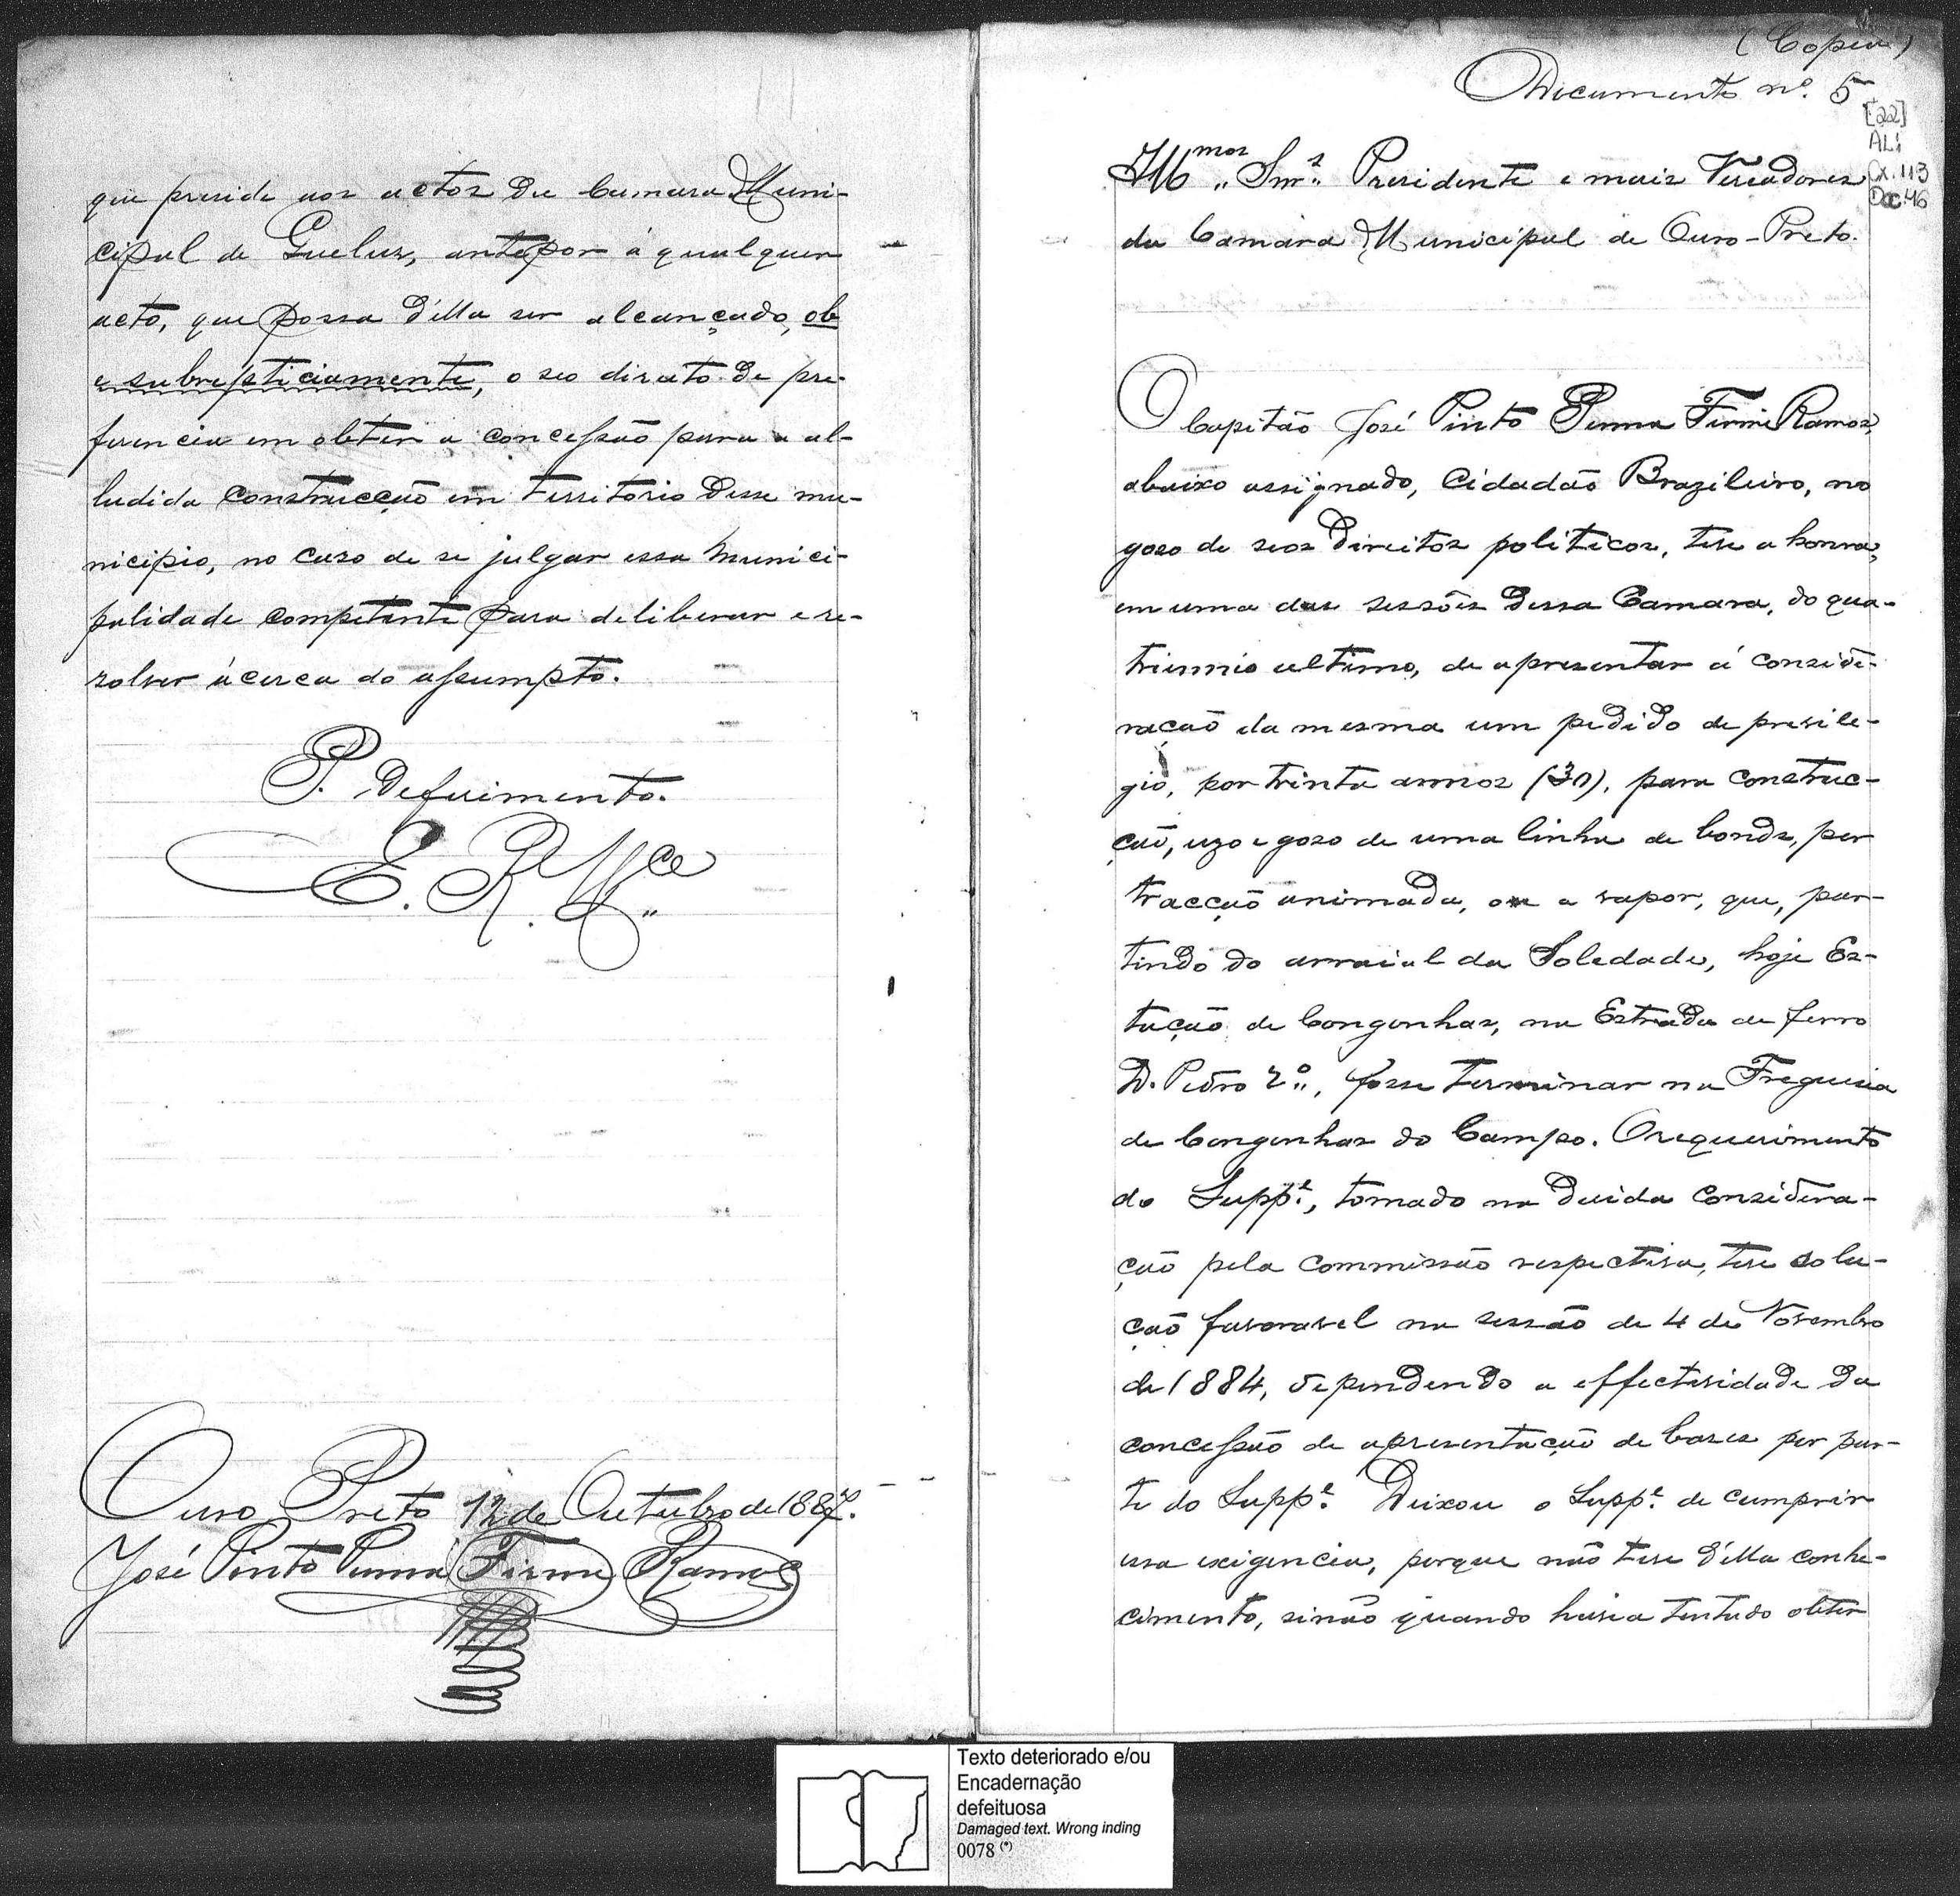 que preside aos actos da Camara Muni-
cipal de Queluz, antepor á qualquer
acto, que possa d'ella ser alcançado, ob
e subrepticiamente, o seo direito de pre-
ferencia em obter a concessão para a al-
ludida construcção em territorio desse mu-
nicipio, no caso de se julgar essa munici-
palidade competente para deliberar e re-
solver ácerca do assumpto.
P. Deferimento.
E. R. M.ce
Ouro Preto 12 de Outubro de 1887.
José Pinto Penna Firme Ramos
(Copia)
Documento nº. 5
[22]
AL1
Cx. 113
Doc. 46
Illmos Snrs. Presidente e mais Vereadores
da Camara Municipal de Ouro-Preto.
O Capitão José Pinto Penna Firme Ramos,
abaixo assignado, Cidadão Brazileiro, no
goso de seos Direitos politicos, teve a honra,
em uma das sessões dessa Camara, do qua-
triennio ultimo, de apresentar á conside-
ração da mesma um pedido de previle-
gio, por trinta annos (30), para construc-
ção, uzo e goso de uma linha de bonds, por
tracção animada, ou a vapor, que, par-
tindo do arraial da Soledade, hoje Es-
tação de Congonhas, na Estrada de ferro
D. Pedro 2º, fosse terminar na Freguesia
de Congonhas do Campo. O requerimento
do Suppe., tomado na devida considera-
ção pela commissão respectiva, teve solu-
ção favoravel na sessão de 4 de Novembro
de 1884, dependendo a effectividade da
concessão de apresentação de bases por par-
te do Suppe. Deixou o Suppe. de cumprir
essa exigencia, porque não teve d'ella conhe-
cimento, sinão quando havia tentado obter
Texto deteriorado e/ou
Encadernação
defeituosa
Damaged text. Wrong inding
0078 (*)